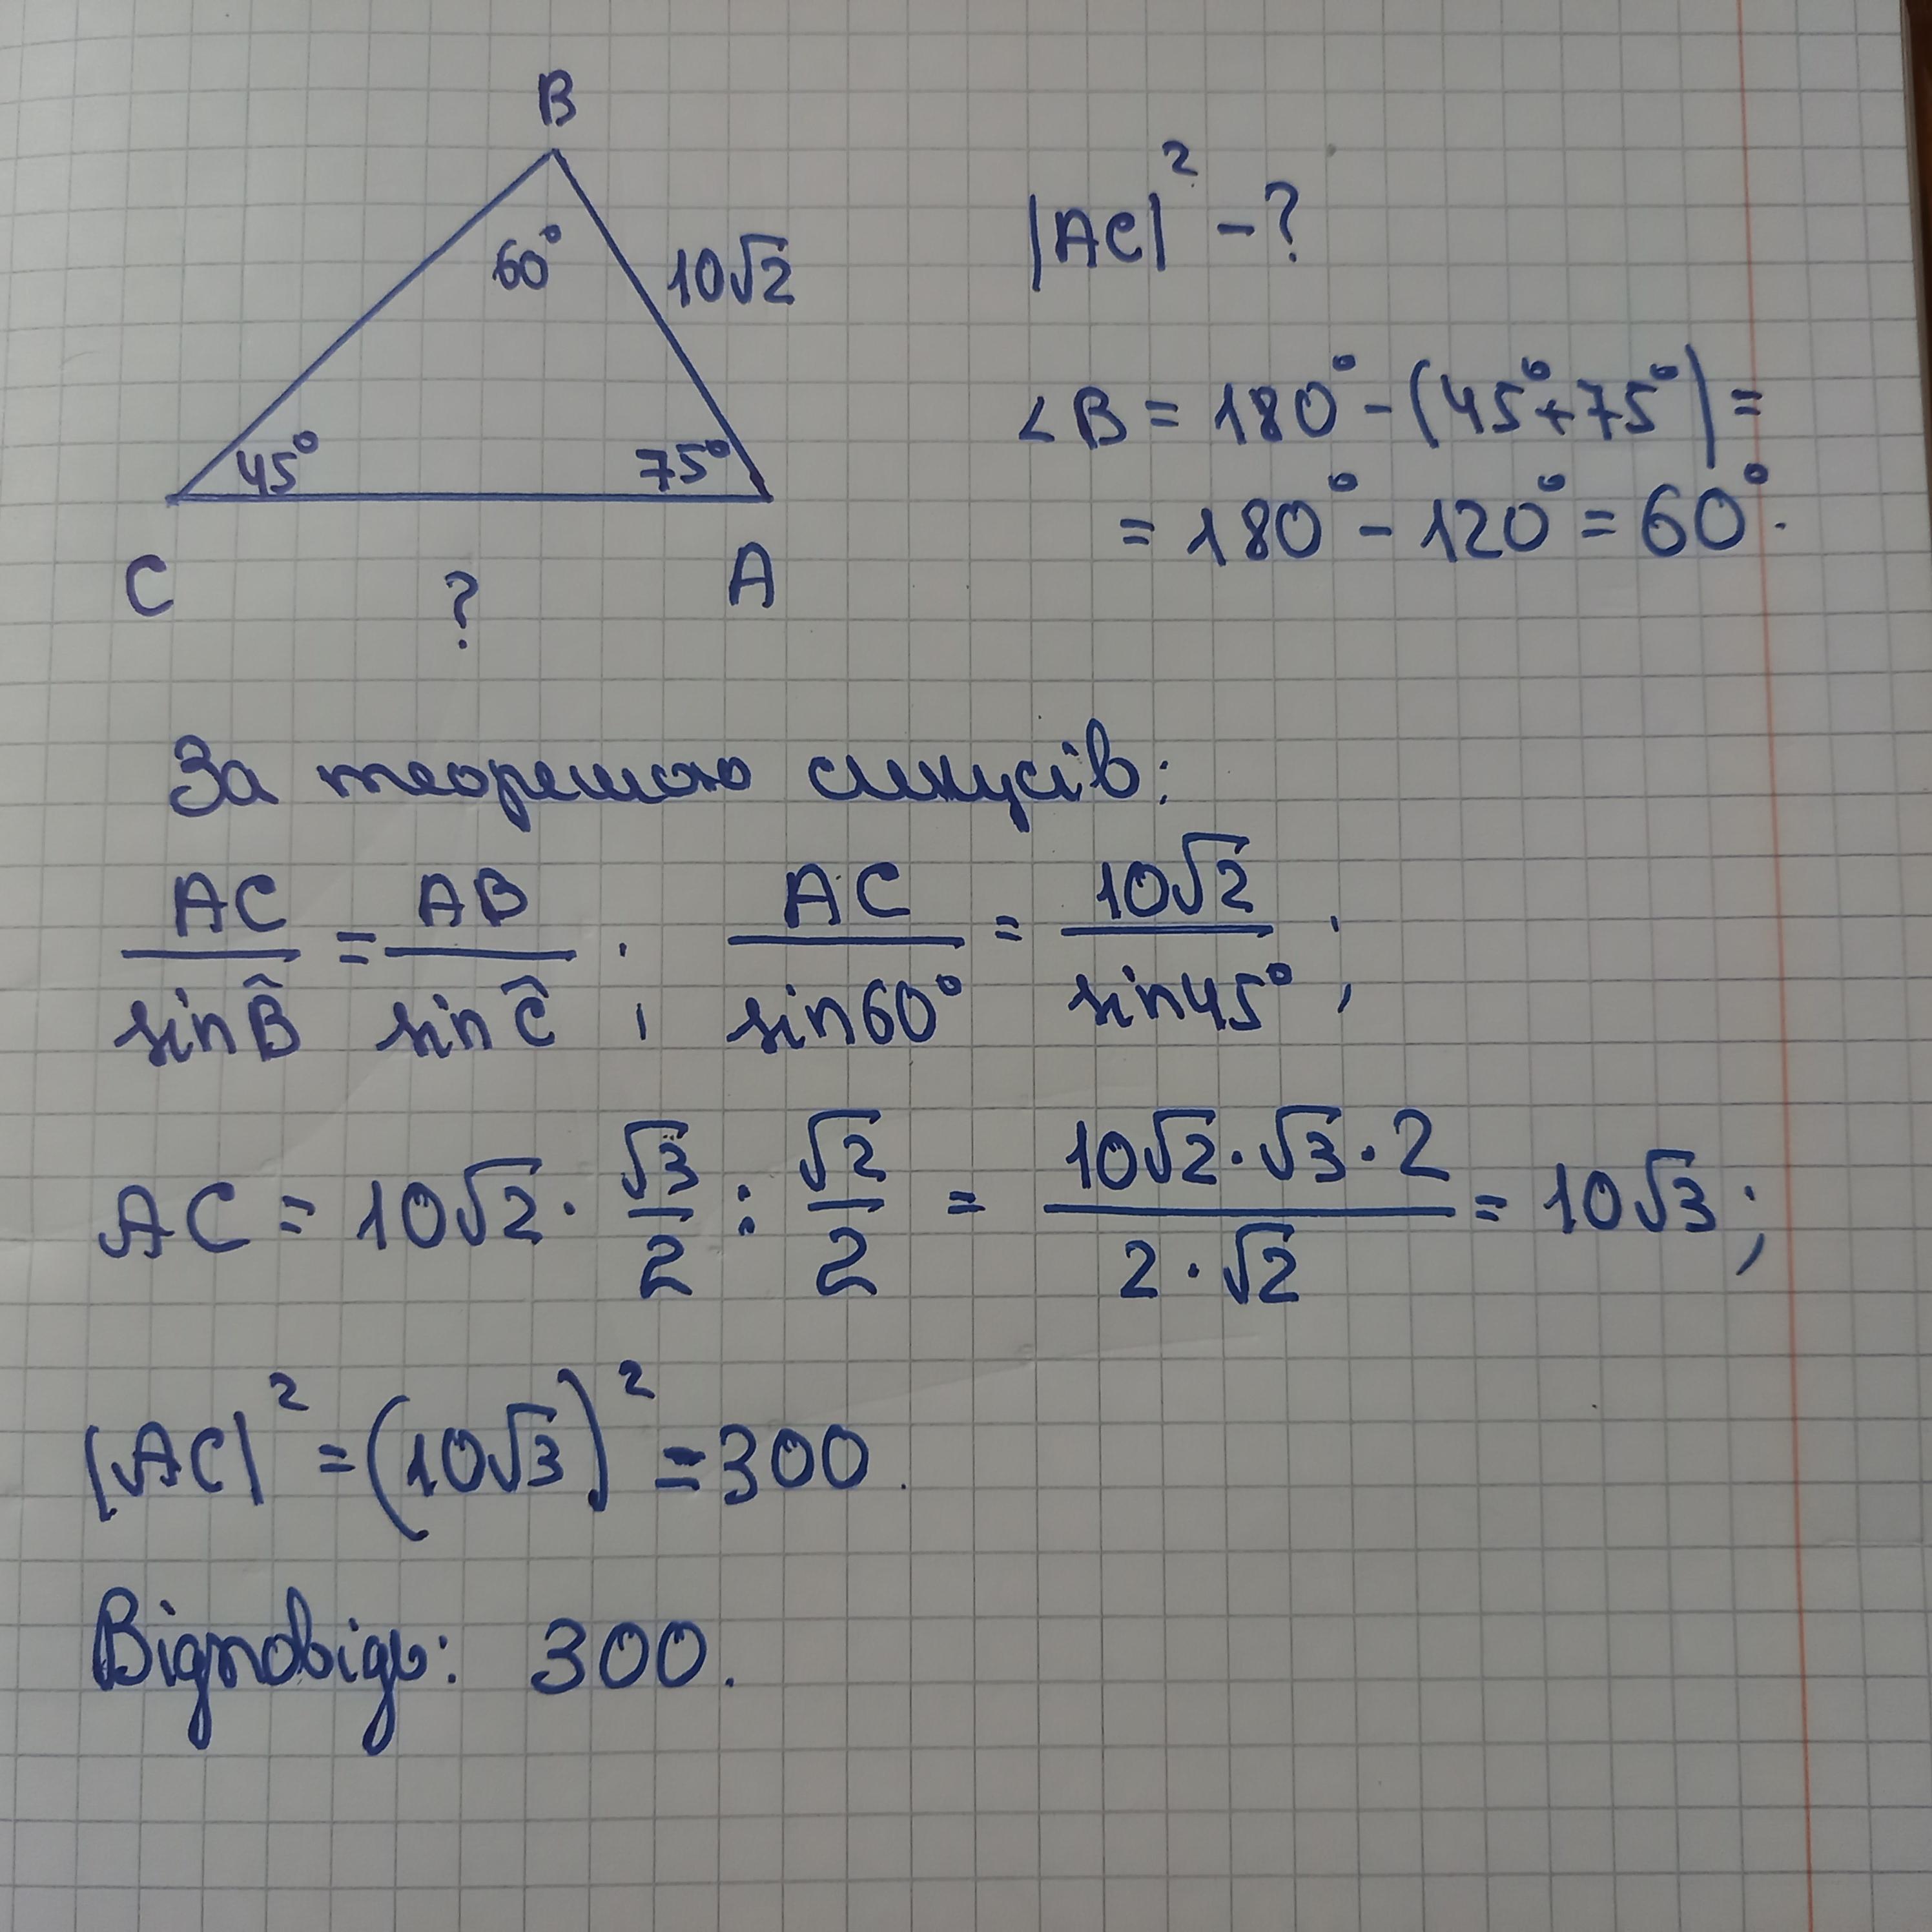 B
60° 10√2
45° 75°
C ? A
|AC|² - ?
∠B = 180° - (45° + 75°) =
= 180° - 120° = 60°.
За теоремою синусів:
AC / sin B̂ = AB / sin Ĉ ; AC / sin60° = 10√2 / sin45° ;
AC = 10√2 · √3/2 : √2/2 = 10√2·√3·2 / 2·√2 = 10√3 ;
|AC|² = (10√3)² = 300.
Відповідь: 300.